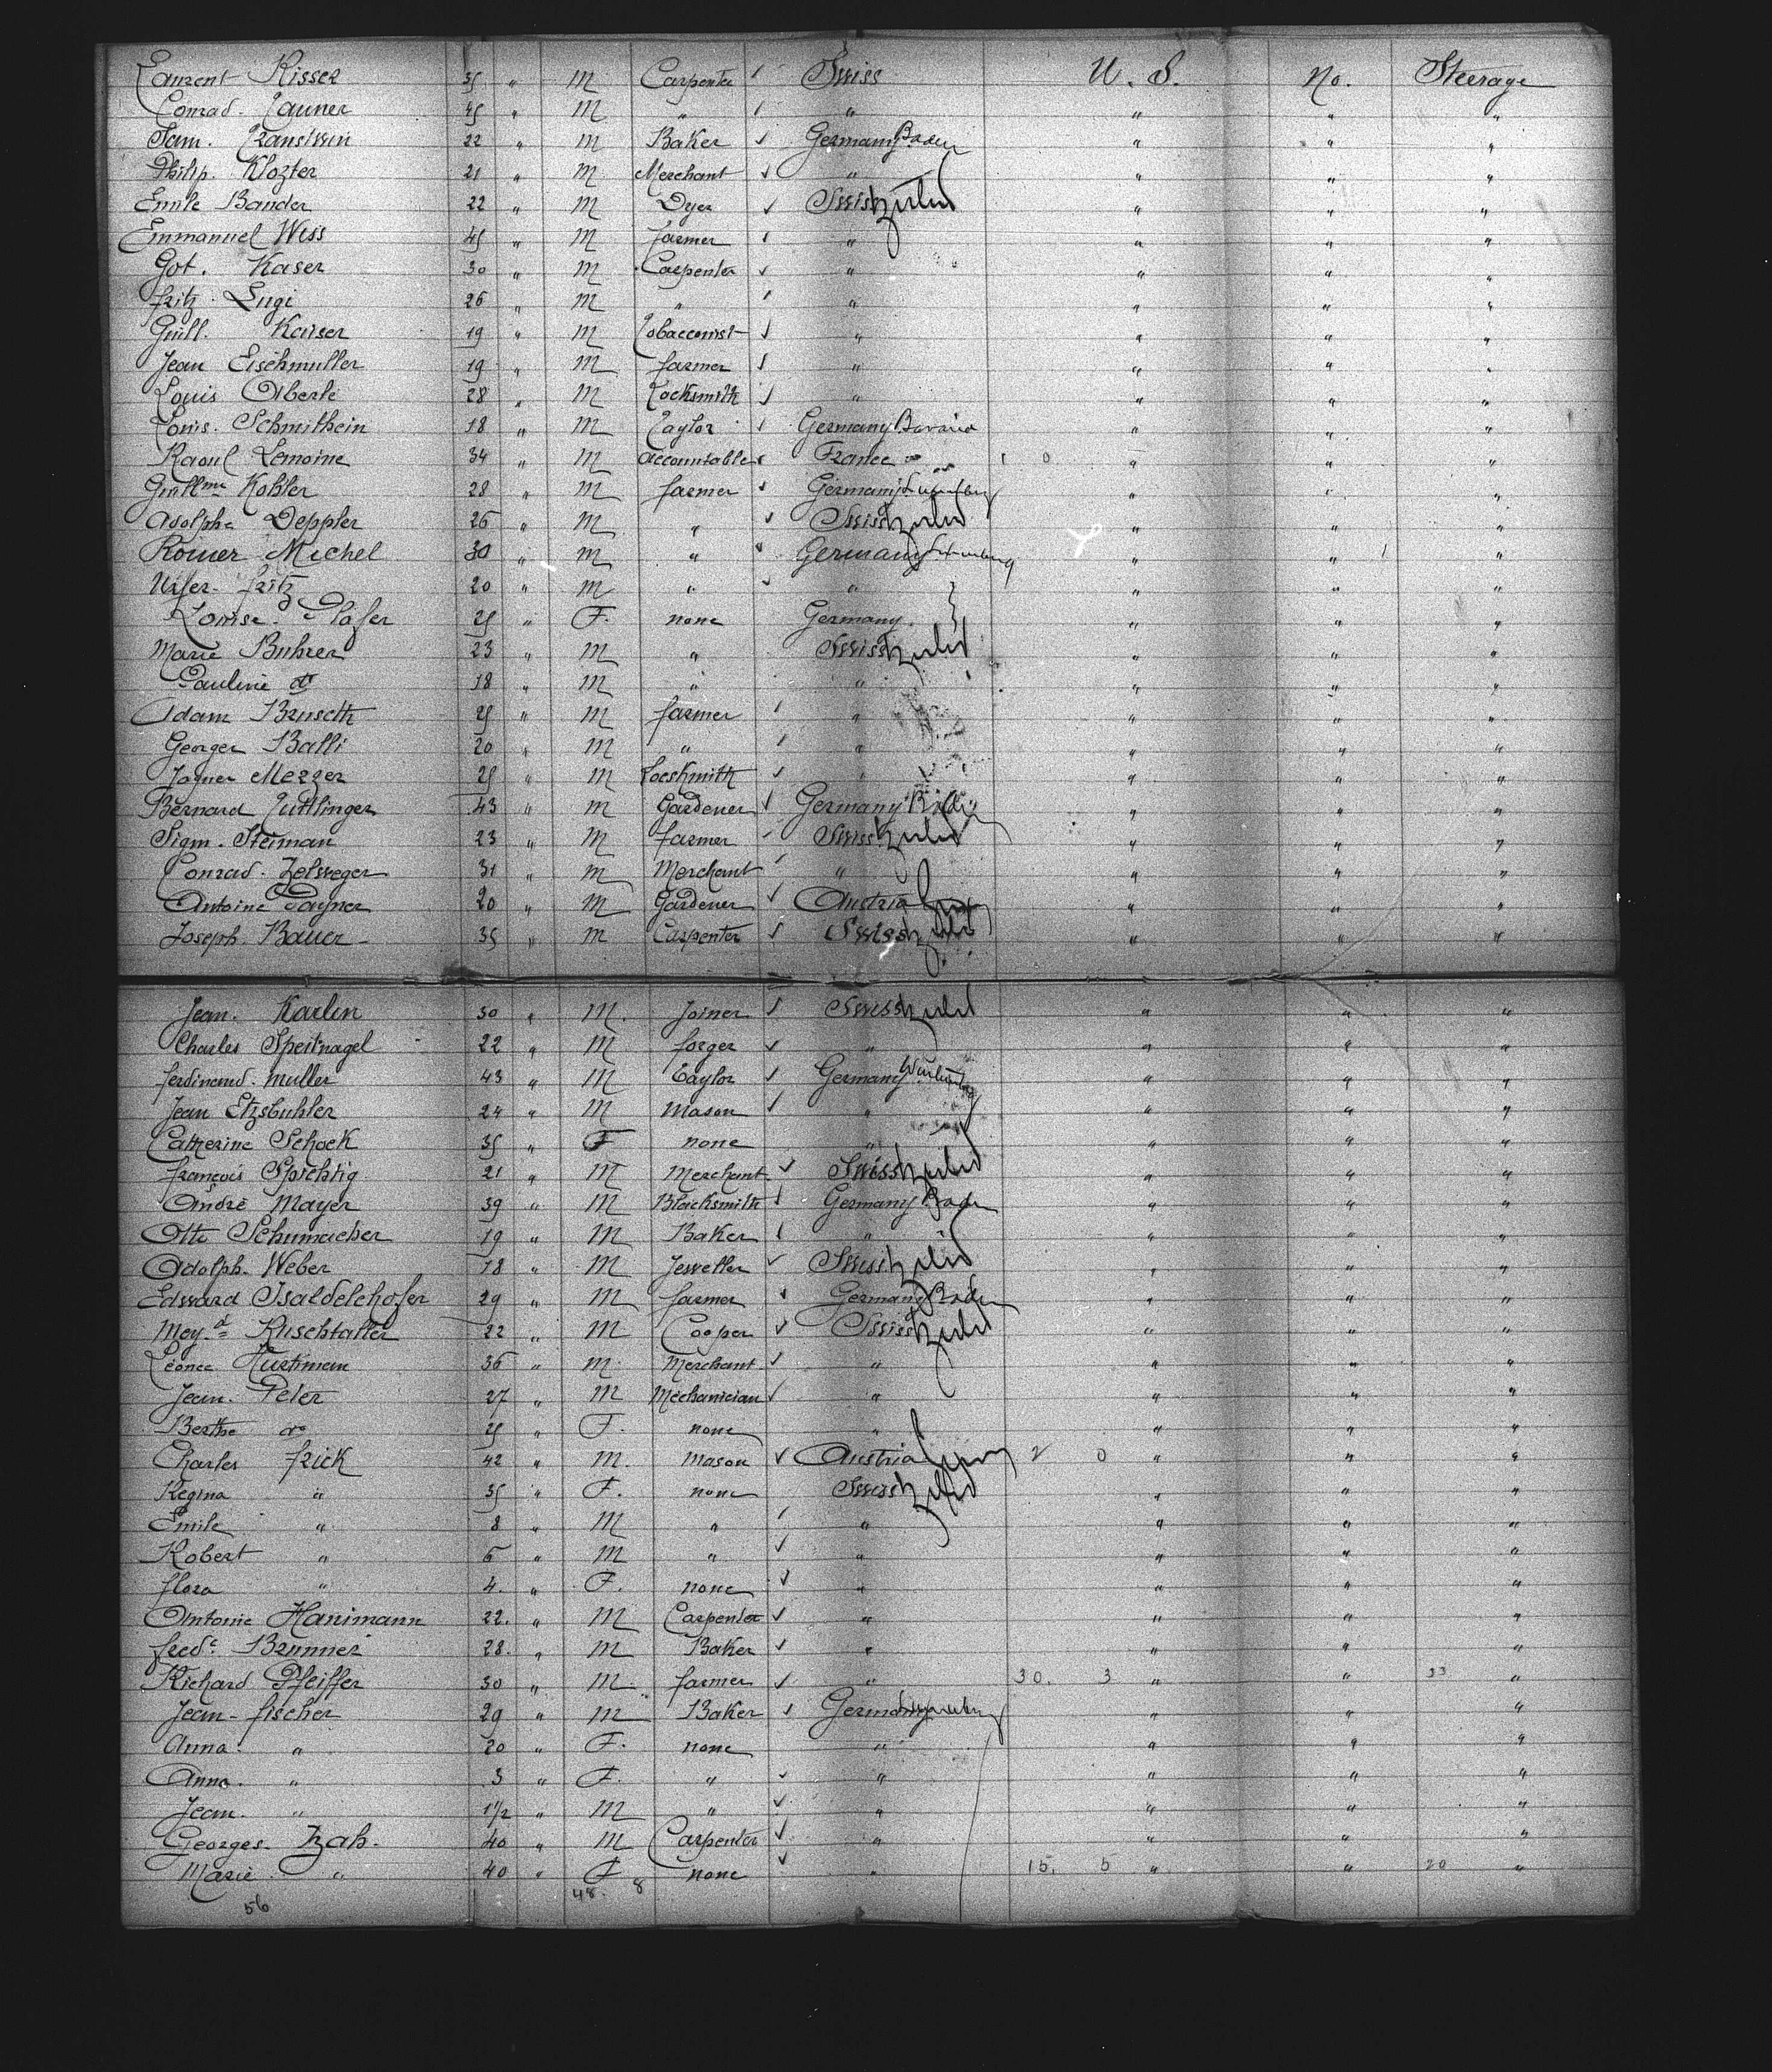 Laurent Risser 35 " M Carpenter Swiss U. S. No. Steerage
Conrad. Tauner 45 " M " " " " "
Sam. 22 " M Baker Germany Baden " " "
Philip. Klozter 21 " M Merchant " " " "
Emile Bander 22 " M Dyer Swiss " " "
Emmanuel Wiss 45 " M farmer " " " "
Got. Kaser 30 " M Carpenter " " " "
fritz. Lugi 26 " M " " " " "
Guill. Kaiser 19 " M Tobacconist " " " "
Jean Eischmuller 19 " M farmer " " " "
Louis Oberle 28 " M Locksmith " " " "
Louis. Schmithein 18 " M Taylor Germany Bavaria " " "
Raoul Lemoine 34 " M accountable France 1 0 " " "
Guillme Kohler 28 " M farmer Germany " " "
Adolphe Deppler 26 " M " Swiss " " "
Roiner Michel 30 " M " Germany " " "
fritz 20 " M " " " " "
Louise. 25 " F. none Germany. " " "
Marie Buhrer 23 " M " Swiss " " "
Pauline do 18 " M " " " " "
Adam Bruscth 25 " M farmer " " " "
Georger Balli 20 " M " " " " "
Merzer 25 " M Locksmith " " " "
Bernard Tuttlinger 43 " M Gardener Germany " " "
Sigm. Steiman 23 " M farmer Swiss " " "
Conrad. Zelsweger 31 " M Merchant " " " "
Antoine Payner 20 " M Gardener Austria " " "
Joseph. Bauer 35 " M Carpenter Swiss " " "
Jean. Karlen 30 " M. Joiner Swiss " " "
Charles Speitnagel 22 " M forger " " " "
ferdinand. Muller 43 " M Taylor Germany " " "
Jean Etzsbuhler 24 " M Mason " " " "
Catherine Schock 35 " F none " " " "
françois Spichtig 21 " M Merchant Swiss " " "
André Mayer 39 " M Blacksmith Germany Baden " " "
Otto Schumacher 19 " M Baker " " " "
Adolph. Weber 18 " M Jeweller Swiss " " "
Edward 29 " M farmer Germany Baden " " "
22 " M Cooper Swiss " " "
Leonce Hurtiman 36 " M Merchant " " " "
Jean. Peter 27 " M Mechanician " " " "
Berthe do 25 " F. none " " " "
Charles frick 42 " M. Mason Austria 2 0 " " "
Regina " 35 " F. none Swiss " " "
Emile " 8 " M " " " " "
Robert " 6 " M " " " " "
flora " 4. " F. none " " " "
Antoine Hanimann 22. " M Carpenter " " " "
fredc. Brunner 28. " M Baker " " " "
Richard Pfeiffer 30 " M. farmer " 30. 3 " " 33 "
Jean - fischer 29 " M Baker " " "
Anna. " 20 " F. none " " " "
Anna. " 3 " F. " " " " "
Jean. " 1 1/2 " M " " " " "
Georges. Zah. 40 " M Carpenter " " " "
Marie. " 40 " F none " 15. 5 " " 20 "
56 48. 8